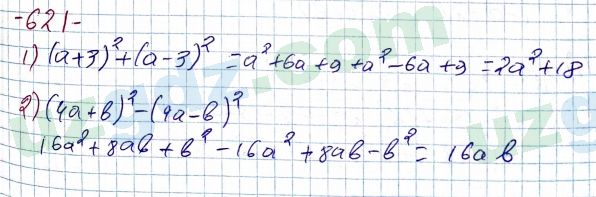 -621-
1) (a+3)²+(a-3)² = a²+6a+9+a²-6a+9 = 2a²+18
2) (4a+b)²-(4a-b)²
16a²+8ab+b²-16a²+8ab-b² = 16ab